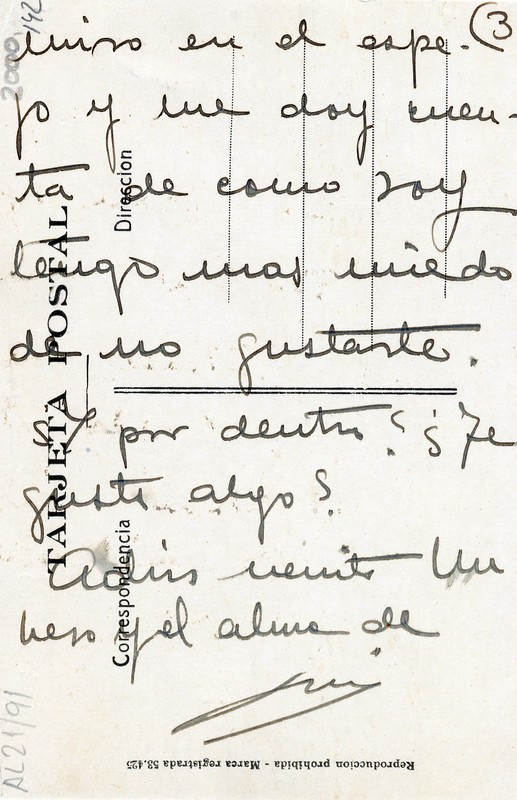 3
miro en el espe-
jo y me doy cuen-
ta de como soy
tengo mas miedo
de no gustarte.
Y por dentro? ¿Te
gusto algo?
Adios nenito Un
beso y el alma de
TARJETA POSTAL
Direccion
Correspondencia
Reproduccion prohibida - Marca registrada 53.425
2000/142
AL21/91